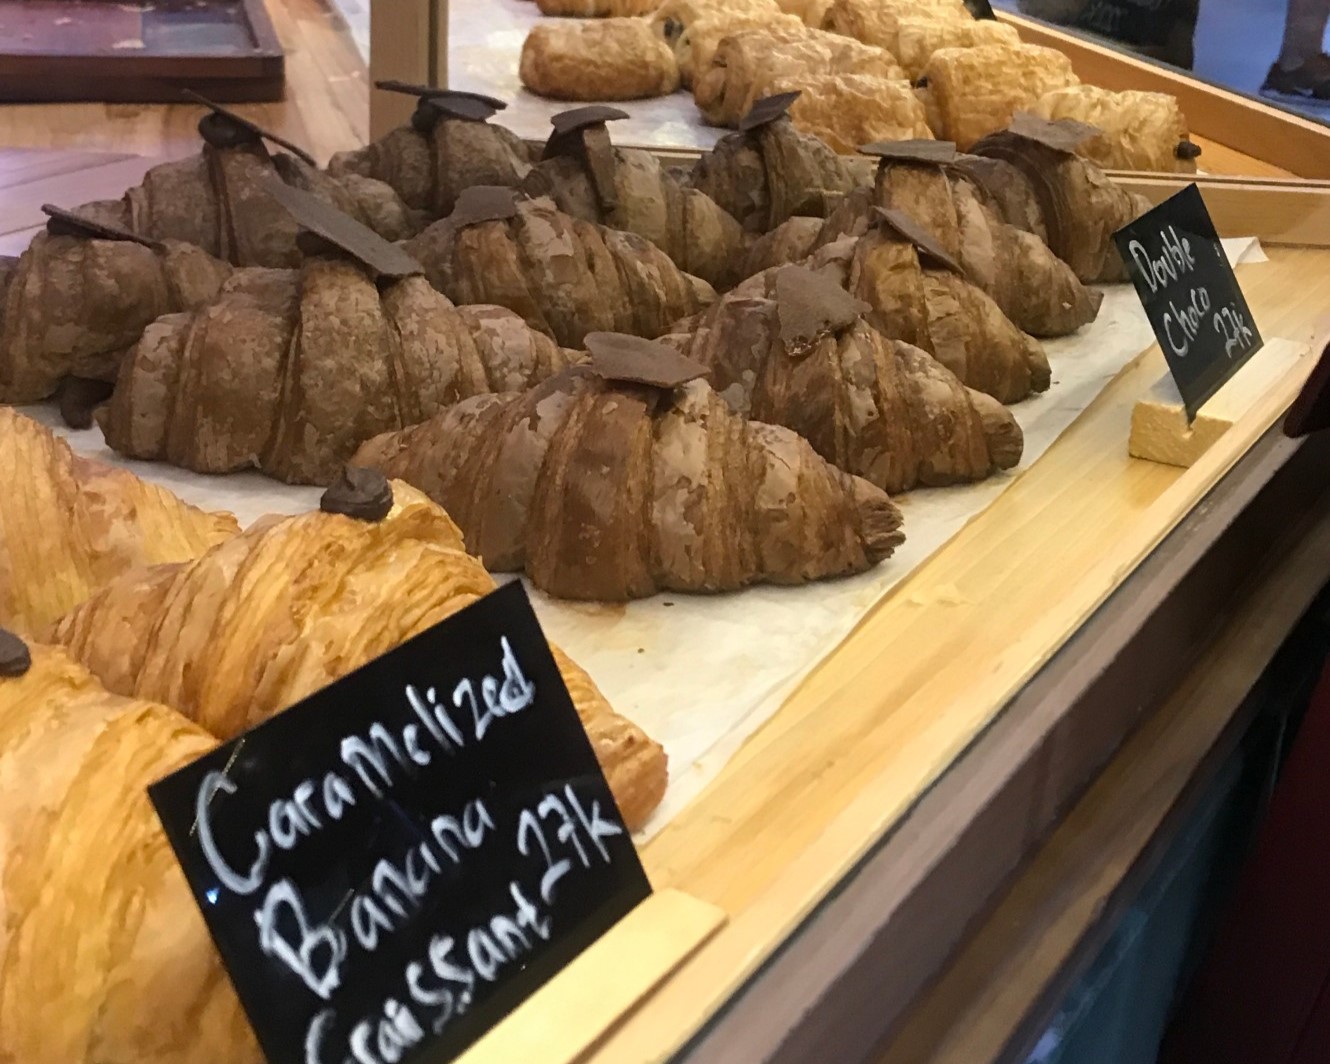 Double
Choco
27k
Caramelized
Banana
Craissant 27k